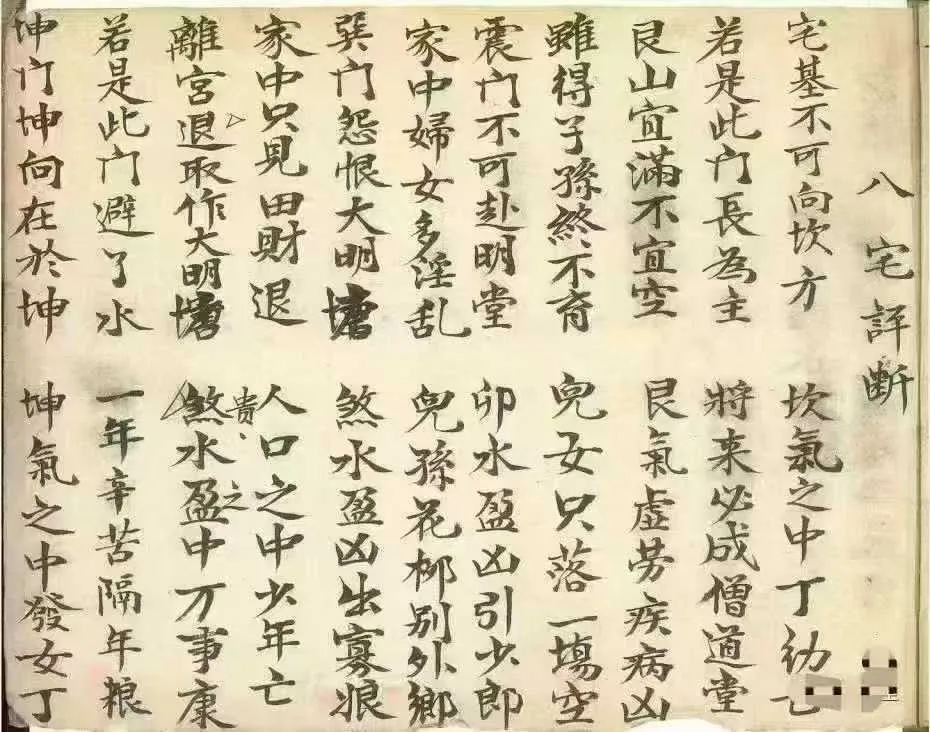 八宅評断
宅基不可向坎方 坎氣之中丁幼亡
若是此门長為主 將来必成僧道堂
艮山宜滿不宜空 艮氣虛劳疾病凶
雖得子孫終不育 兒女只落一塲空
震门不可赴明堂 卯水盈凶引少郎
家中婦女多淫乱 兒孫花柳别外鄉
巽门怨恨大明塘 煞水盈凶出寡娘
家中只見田財退 人口之中少年亡
離宮退取作大明塘 煞貴水盈之中万事康
若是此门避了水 一年辛苦隔年粮
坤门坤向在於坤 坤氣之中發女丁